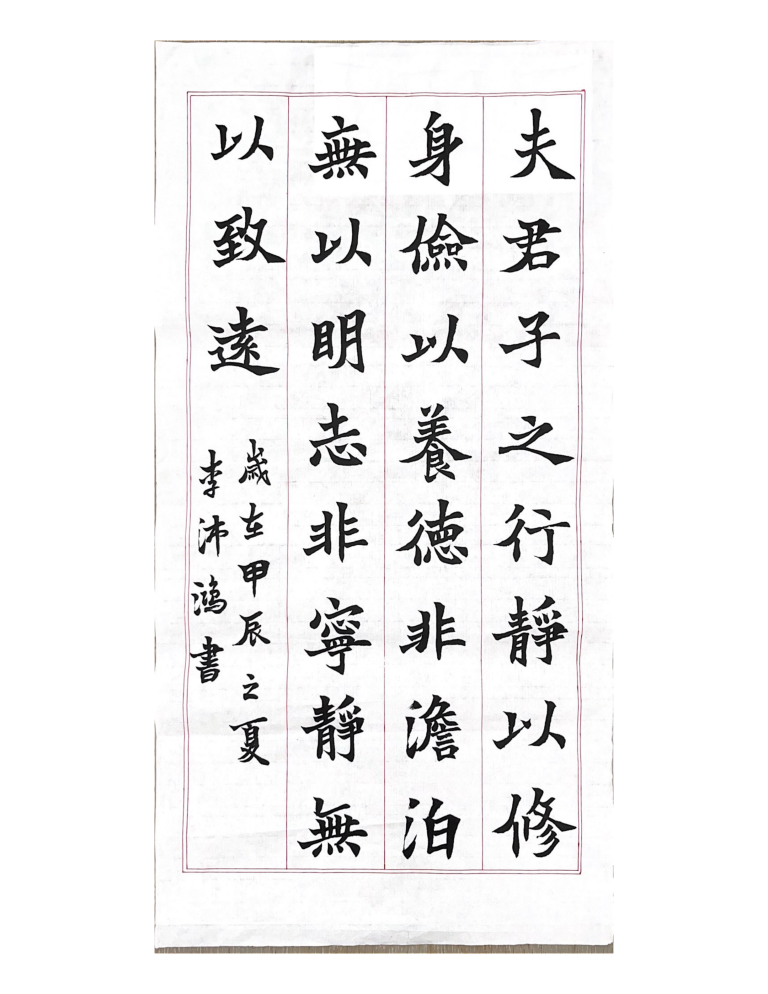 夫君子之行靜以修
身儉以養德非澹泊
無以明志非寧靜無
以致遠
歲在甲辰之夏
李沛鴻書